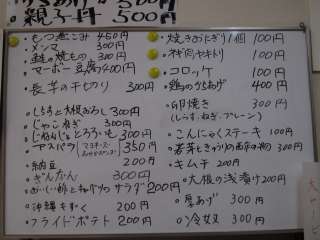 500円
親子丼 500円
・もつ煮こみ 450円
・メンマ 300円
・鮭の焼もの 300円
・マーボー豆腐 400円
・長芋の千切り 300円
・しらすと大根おろし 300円
・じゃこねぎ 300円
とろろいも 300円
・アスパラ 350円
・納豆 200円
・ぎんなん 300円
サラダ 200円
・沖縄もずく 200円
・フライドポテト 200円
・焼きおにぎり1個 100円
・ネギ肉ヤキトリ 100円
・コロッケ 100円
・鶏のからあげ 400円
・卵焼き 300円
(しらす、ねぎ、プレーン)
・こんにゃくステーキ 100円
300円
・キムチ 200円
・大根の浅漬け 200円
・厚あげ 300円
・冷奴 300円